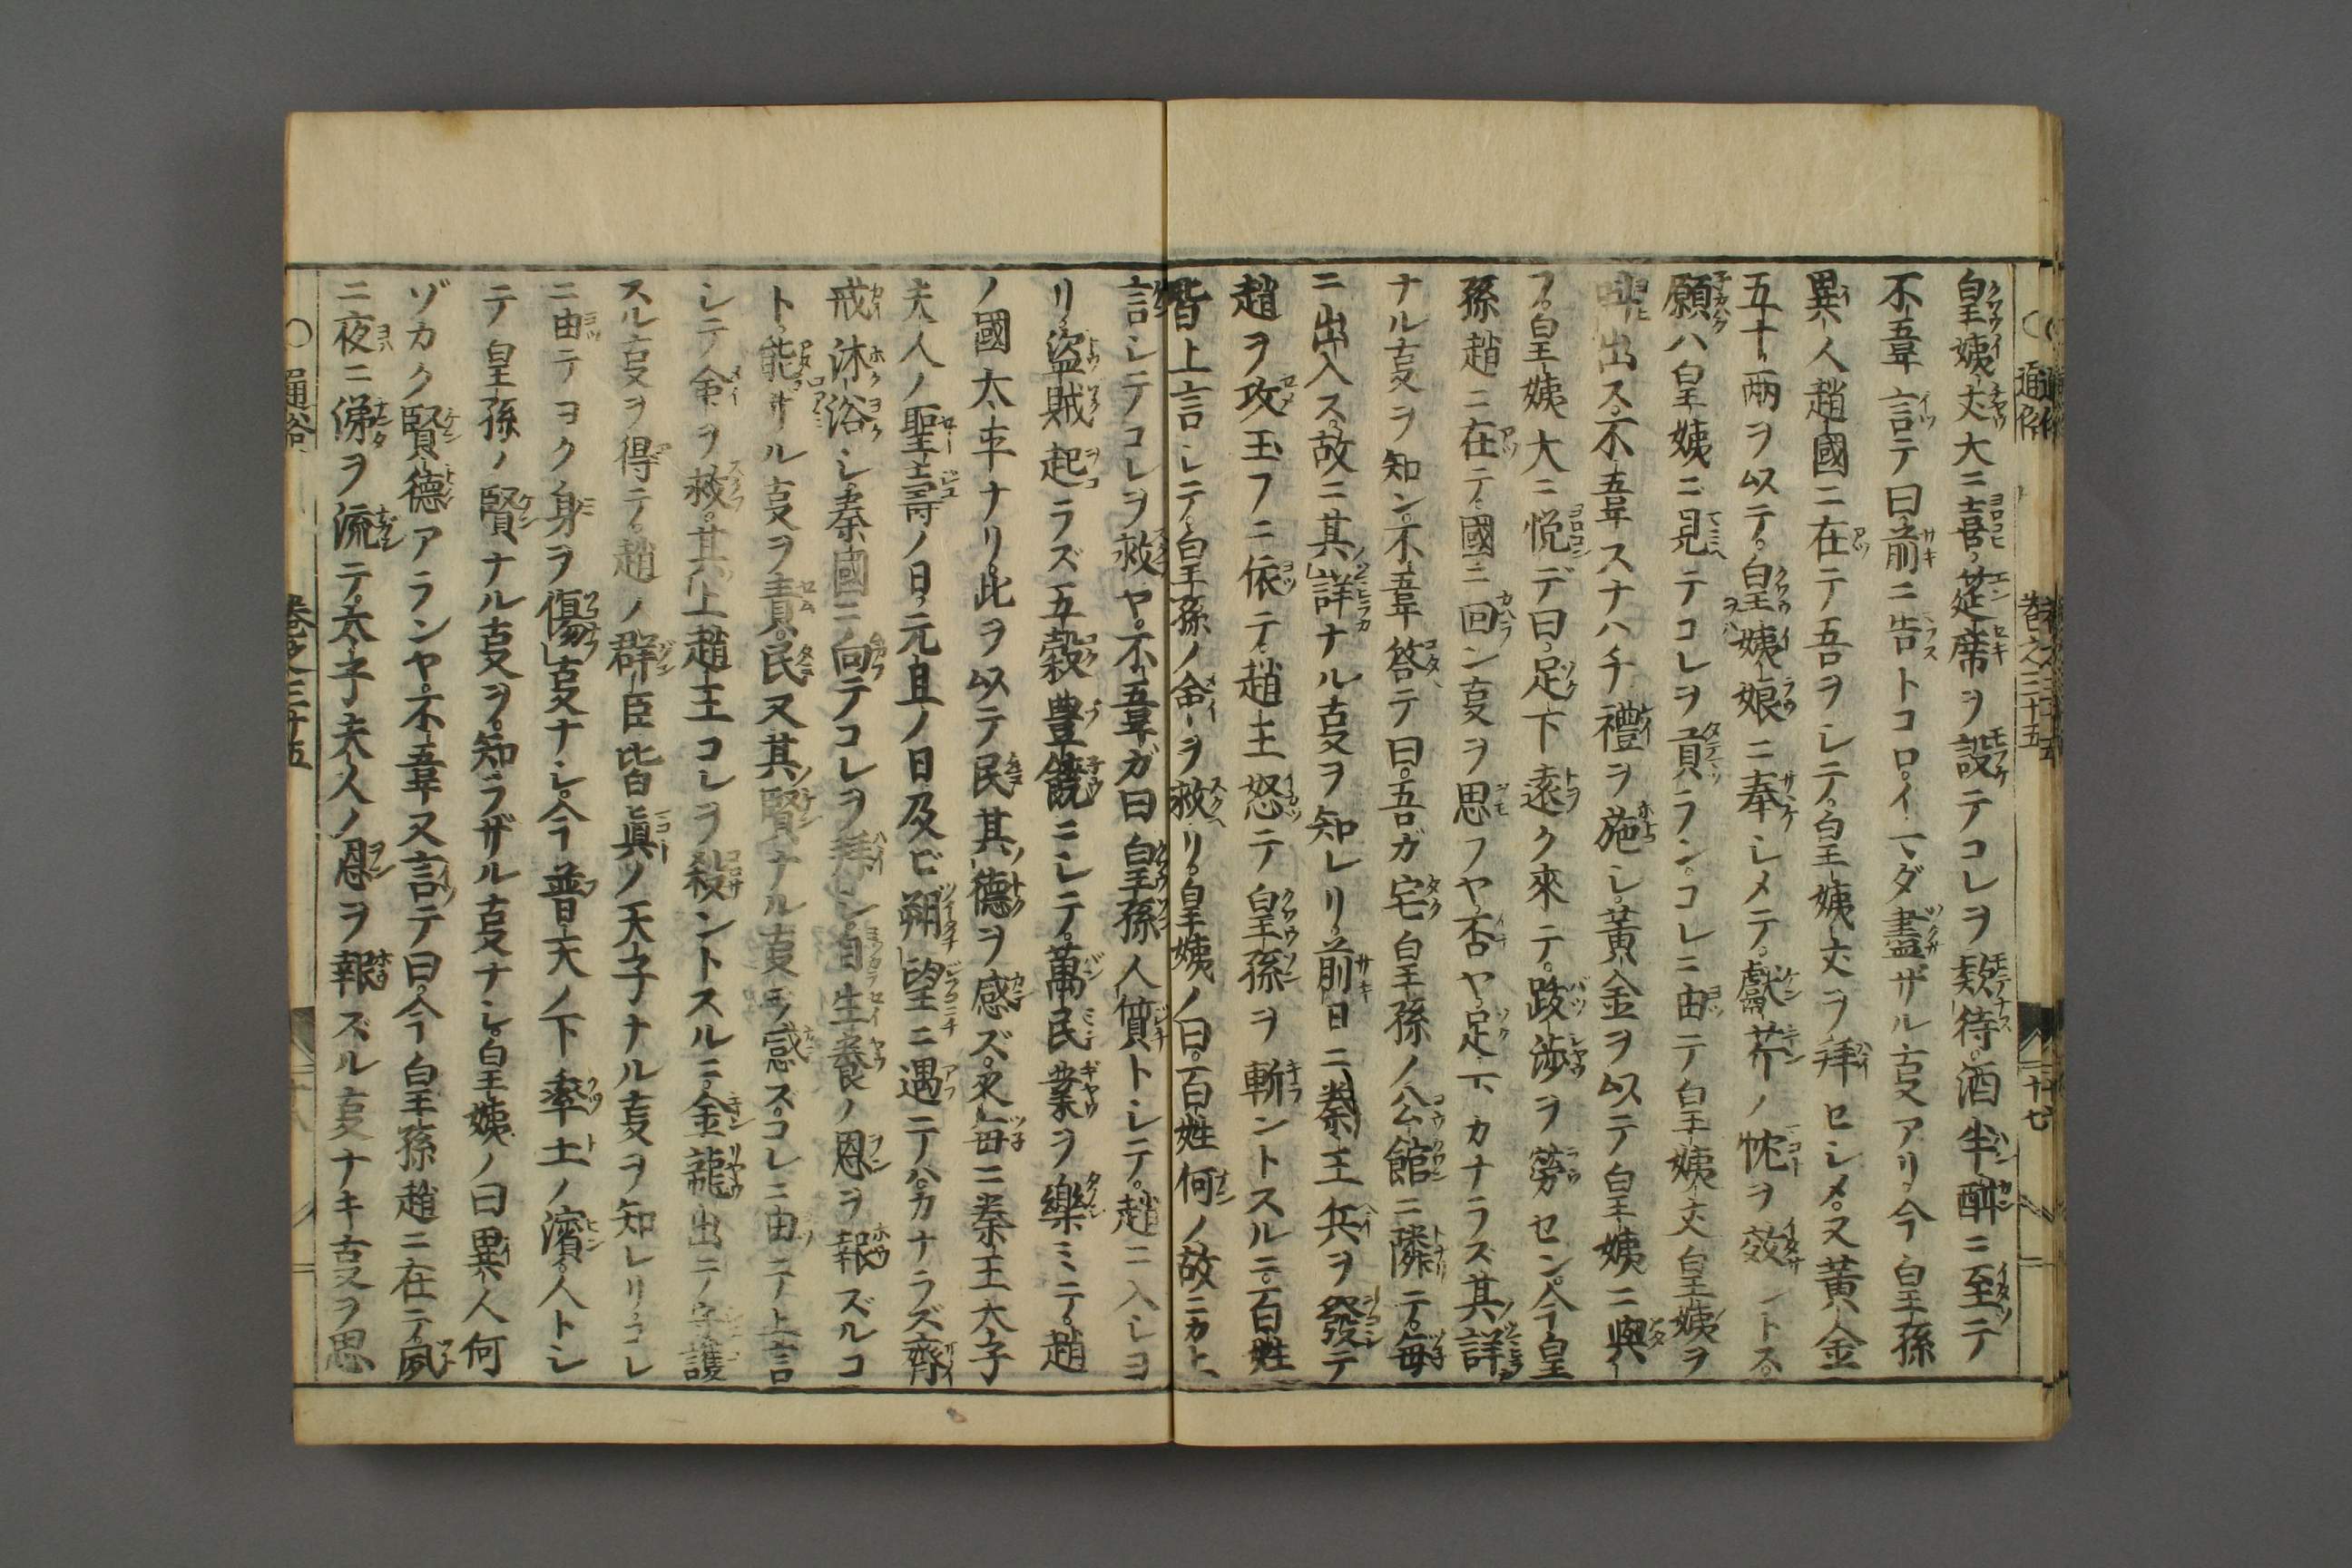 皇姨丈大ニ喜ヒ筵席ヲ設テコレヲ欵待。酒半酣ニ至テ
不韋言テ曰前ニ告トコロ。イマダ盡ザル叓アリ今皇孫
異人趙國ニ在テ吾ヲシテ皇姨丈ヲ拜セシメ。又黃金
五十兩ヲ以テ。皇姨娘ニ奉シメテ。獻芹ノ忱ヲ效ントス。
願ハ皇姨ニ見テコレヲ貢ラン。コレニ由テ皇姨丈皇姨ヲ
呼出ス。不韋スナハチ禮ヲ施シ。黃金ヲ以テ皇姨ニ與
フ。皇姨大ニ悅デ曰。足下遠ク來テ。跋渉ヲ勞セン。今皇
孫趙ニ在テ。國ニ回ン叓ヲ思フヤ否ヤ。足下カナラス其詳
ナル叓ヲ知ン。不韋答テ曰。吾ガ宅皇孫ノ公館ニ隣テ。每
ニ出入ス。故ニ其詳ナル叓ヲ知レリ。前日ニ秦王兵ヲ發テ
趙ヲ攻玉フニ依テ。趙王怒テ皇孫ヲ斬ントスルニ。百姓
皆上言シテ。皇孫ノ命ヲ救リ。皇姨ノ曰。百姓何ノ故ニカ上
言シテコレヲ救ヤ。不韋ガ曰皇孫人質トシテ。趙ニ入シヨ
リ。盜賊起ラズ五穀豊饒ニシテ。萬民業ヲ樂ミニテ。趙
ノ國太平ナリ。此ヲ以テ民其德ヲ感ズ。又每ニ秦王太子
夫人ノ聖壽ノ日。元旦ノ日及ビ朔望ニ遇テハ。カナラズ齊
戒沐浴シ秦國ニ向テコレヲ拜シ。自生養ノ恩ヲ報ズルコ
ト。能ザル叓ヲ責。民又其賢ナル叓ヲ感ズ。コレニ由テ上言
シテ命ヲ救。其上趙王コレヲ殺ントスルニ。金龍出テ守護
スル叓ヲ得テ。趙ノ群臣皆眞ノ天子ナル叓ヲ知レリ。コレ
ニ由テヨク身ヲ傷叓ナシ。今普天ノ下率土ノ濱。人トシ
テ皇孫ノ賢ナル叓ヲ。知ラザル叓ナシ。皇姨ノ曰異人何
ゾカク賢德アランヤ。不韋又言テ曰。今皇孫趙ニ在テ。夙
ニ夜ニ涕ヲ流テ。太子夫人ノ恩ヲ報ズル叓ナキ叓ヲ思
〇通俗 卷之三十五 二十七
〇通俗 卷之三十五 二十八